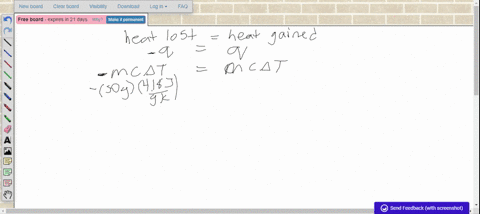 New board Close board Visibility Download Login ▾ FAQ
Free board - expires in 21 days Make it permanent
heat lost = heat gained
-q = q
-mcΔT = mcΔT
-(50g)(4.184J/gK)
Send Feedback (with screenshot)